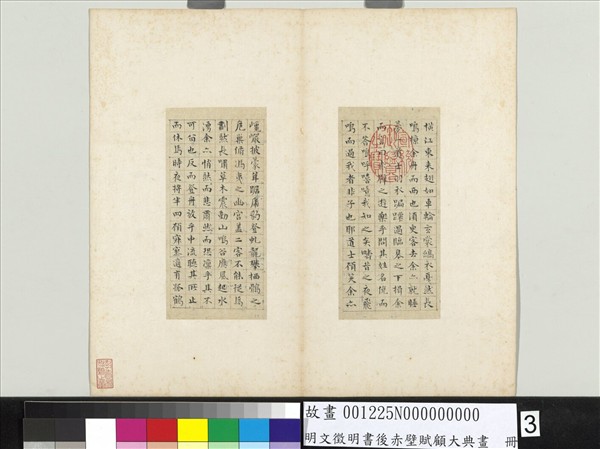 巉巖披蒙茸踞虎豹登虬龍攀栖鶻之
危巢俯馮夷之幽宮蓋二客不能從焉
劃然長嘯草木震動山鳴谷應風起水
湧余亦悄然而悲肅然而恐凜乎其不
可留也反而登舟放乎中流聽其所止
而休焉時夜將半四顧寂寥適有孤鶴
橫江東來翅如車輪玄裳縞衣戛然長
鳴掠余舟而西也須臾客去余亦就睡
夢一道士羽衣蹁躚過臨皋之下揖余
而言曰赤壁之遊樂乎問其姓名俛而
不答嗚呼噫嘻我知之矣疇昔之夜飛
鳴而過我者非子也耶道士顧笑余亦
故畫 001225N000000000
明文徵明書後赤壁賦顧大典畫 冊
3